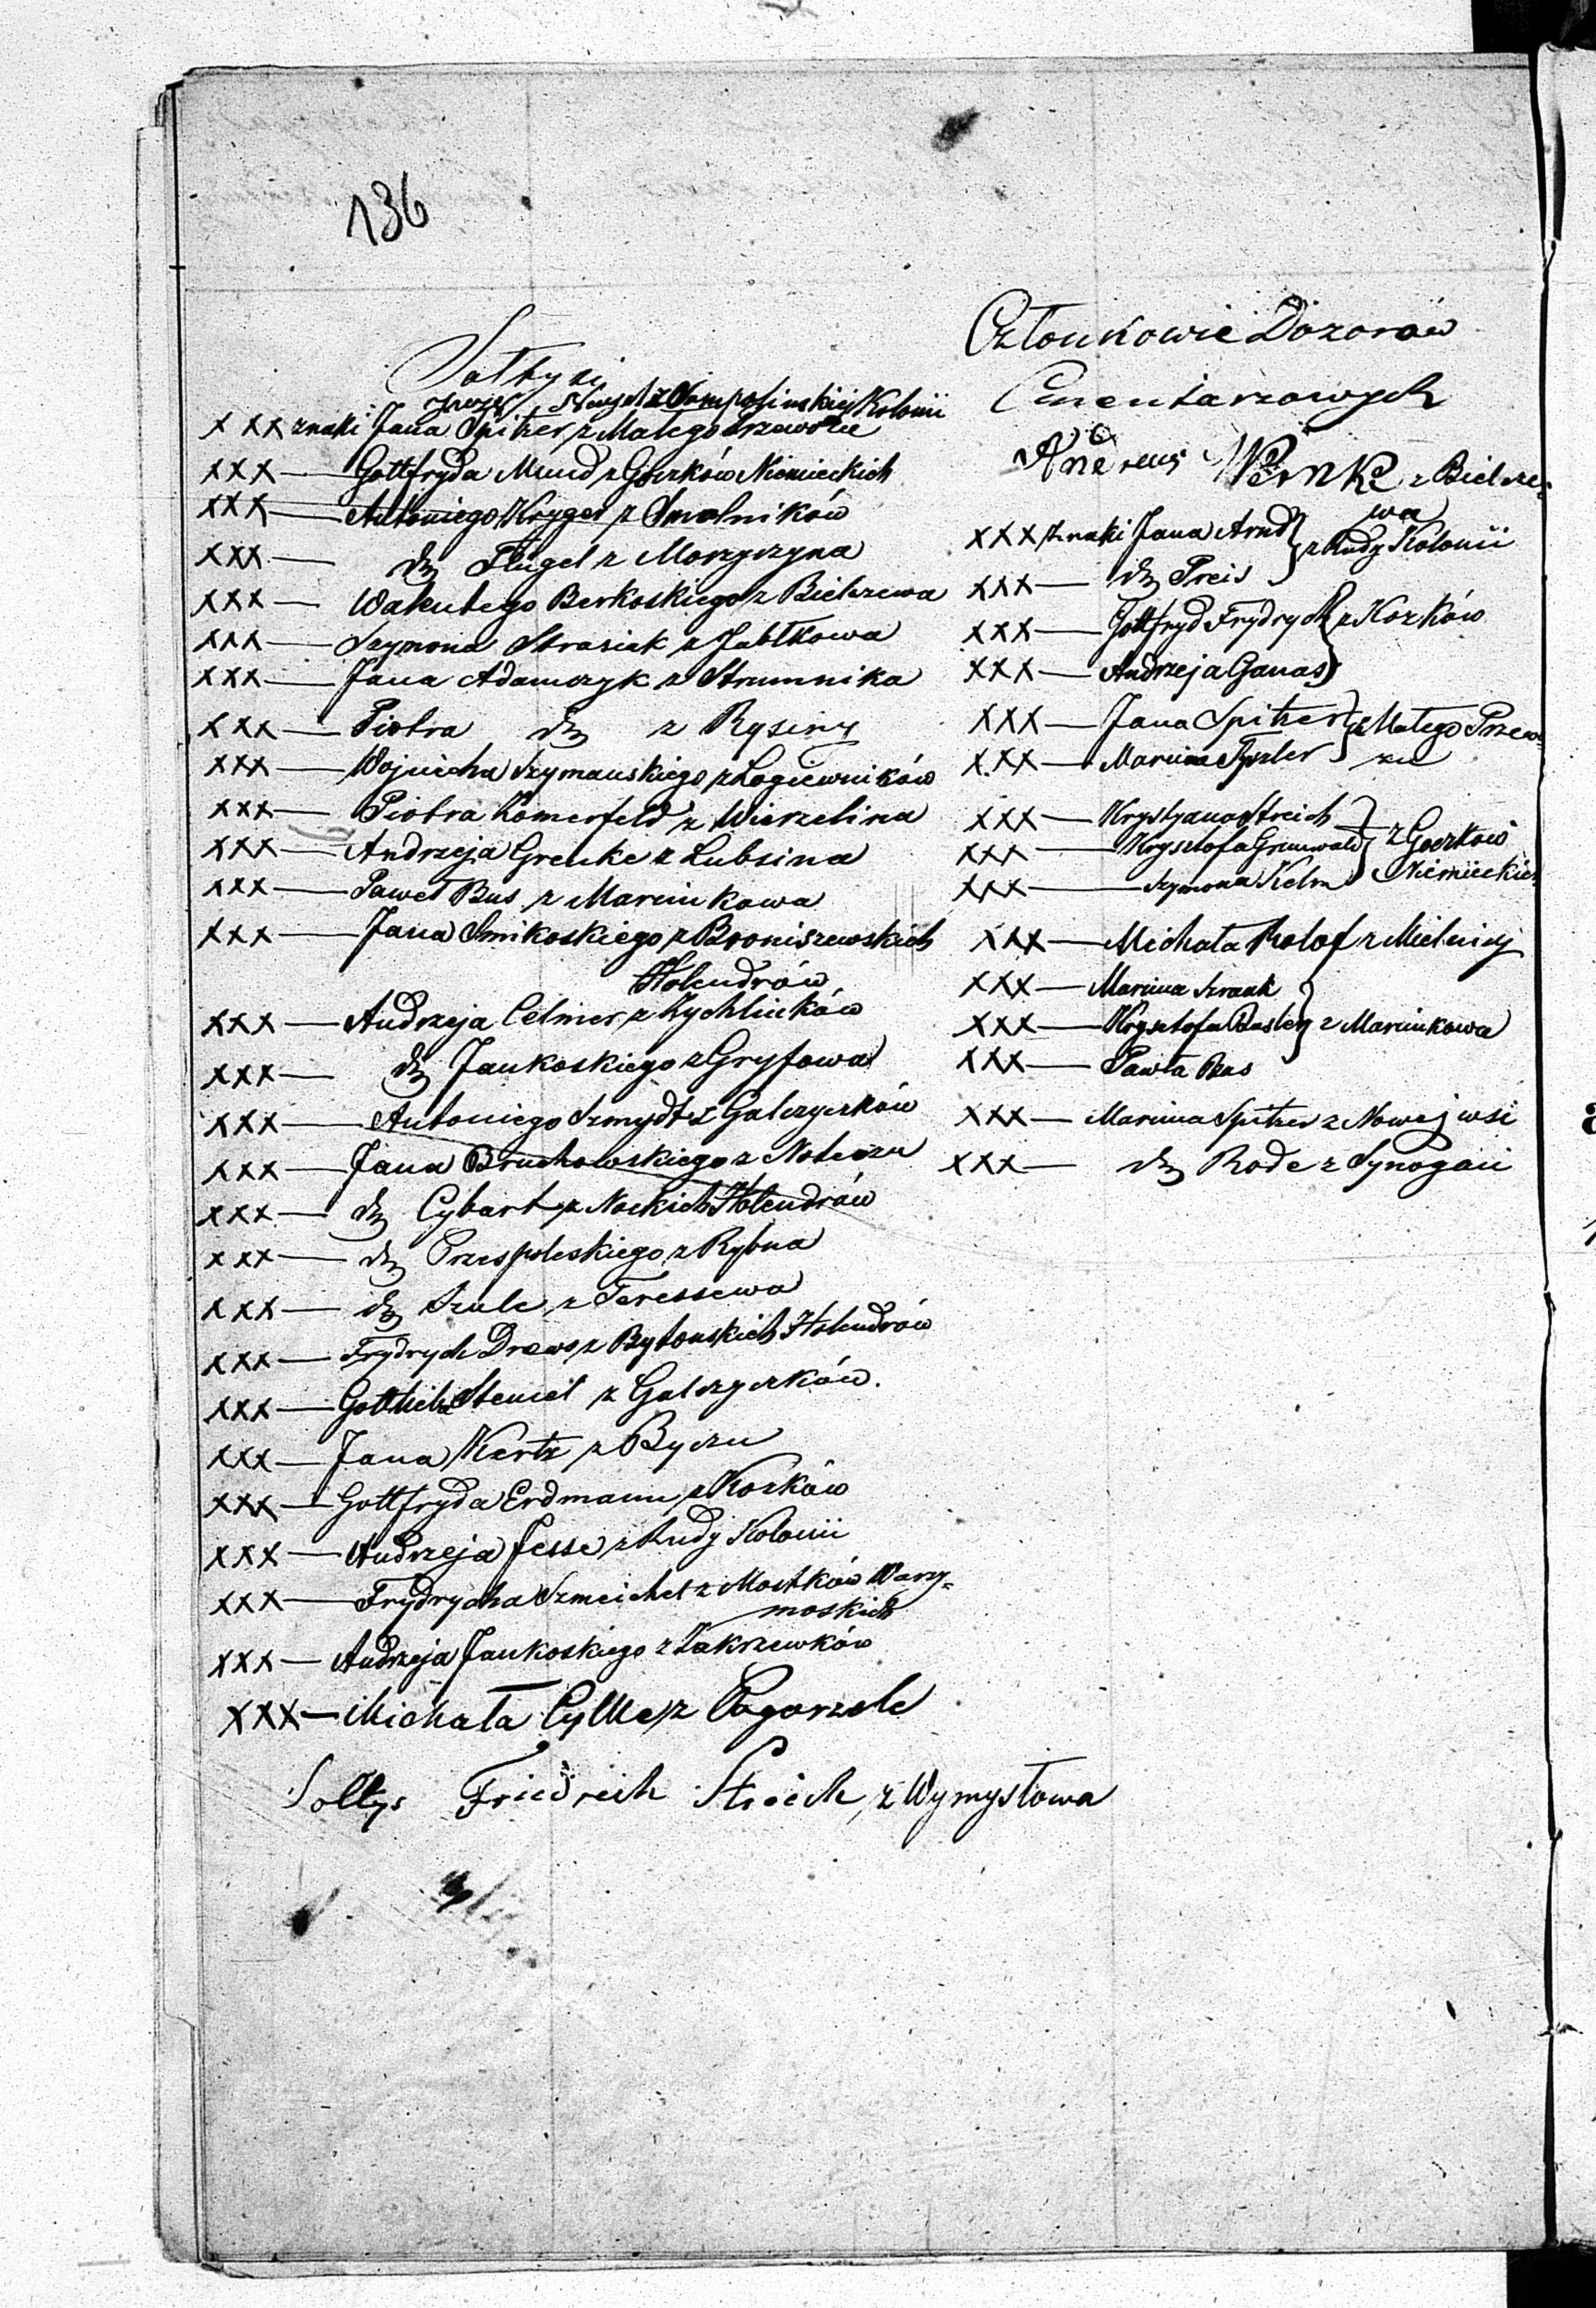 136
Sołtysi
Józef z Sompolinskiej Kolonii
XXX znaki Jana Spitzer z Małego Przewozu
XXX — Gottfryda Mund z Goczków Niemieckich
XXX — Antoniego Kryger z Smolników
XXX — dto Flügel z Morzyczyna
XXX — Walentego Berkoskiego z Bielszewa
XXX — Szymona Strasiak z Jabłkowa
XXX — Jana Adamczyk z Strumnika
XXX — Piotra dto z Rysiny
XXX — Wojciecha Szymanskiego z Łagiewników
XXX — Piotra Zomerfeld z Wierzelina
XXX — Andrzeja Grenke z Lubsina
XXX — Paweł Bus z Marcinkowa
XXX — Jana Smikoskiego z Broniszewskich
Holendrów
XXX — Andrzeja Celmer z Zychlinków
XXX — dto Jankoskiego z Gryfowa
XXX — Antoniego Szmydt z Galczyczków
XXX — Jana Bruchowskiego z Noteczu
XXX — dto Cybart z Nockich Holendrów
XXX — dto Przespoleskiego z Rybna
XXX — dto Szulc z Teressewa
XXX — Frydrych Drews z Bytonskich Holendrów
XXX — Gottlieba Stencel z Galczyczków.
XXX — Jana Kertz z Byczu
XXX — Gottfryda Erdmann z Kozków
XXX — Andrzeja Jesse z Rudy Kolonii
XXX — Frydrycha Szmeichel z Mostków Warzy=
moskich
XXX — Andrzeja Jankoskiego z Zakrzewków
XXX — Michała Cylke z Pogorzele
Soltys Friedrich Streich z Wymysłowa
Członkowie Dozorów
Cmentarzowych
Andreus Wernke z Bielsze=
wa
XXX znaki Jana Arnd } z Rudy Kolonii
XXX — dto Preis
XXX — Gottfryd Frydrych } z Kozków
XXX — Andrzeja Ganas
XXX — Jana Spitzer } z Małego Przewo=
XXX — Marcina Fyszler zu
XXX — Krystyana Streich
XXX — Krysztofa Grunwald } z Goczków
XXX — Szymona Kelm Niemieckich
XXX — Michała Rolof z Mielnicy
XXX — Marcina Szrank
XXX — Krysztofa Basler } z Marcinkowa
XXX — Pawła Bus
XXX — Marcina Spitzer z Nowej wsi
XXX — dto Rode z Synogaci